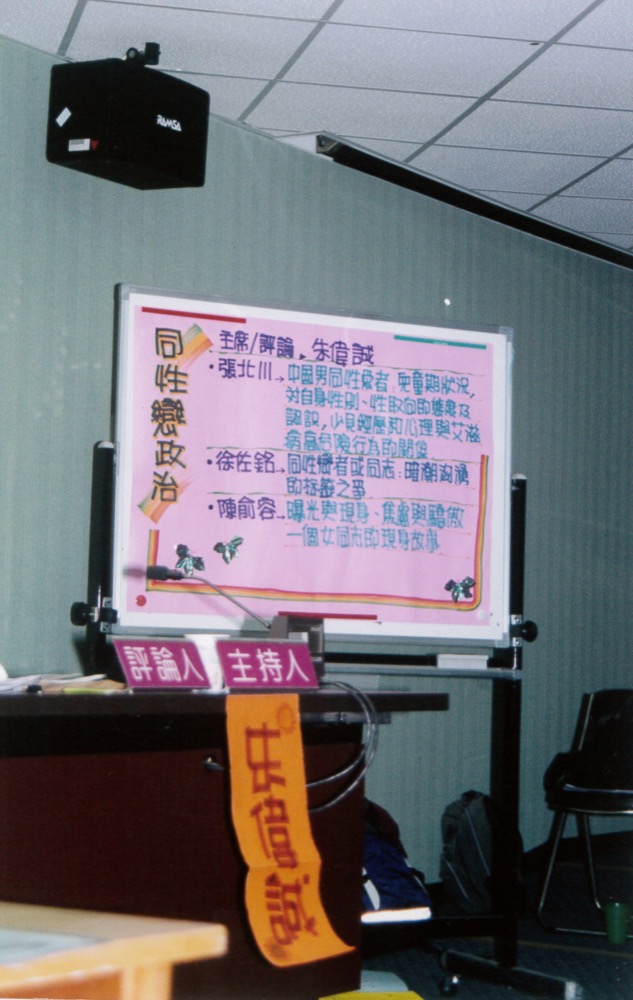 RAMSA
同性戀政治
主席/評論、朱偉誠
•張北川→中國男同性愛者:兒童期狀況,
對自身性別、性取向的態度及
認識,少見經歷和心理與艾滋
病高危險行為的關係
•徐佐銘→同性戀者或同志:暗潮洶湧
的标籤之爭
•陳俞容→曝光與現身、焦慮與驕傲
一個女同志的現身故事
評論人
主持人